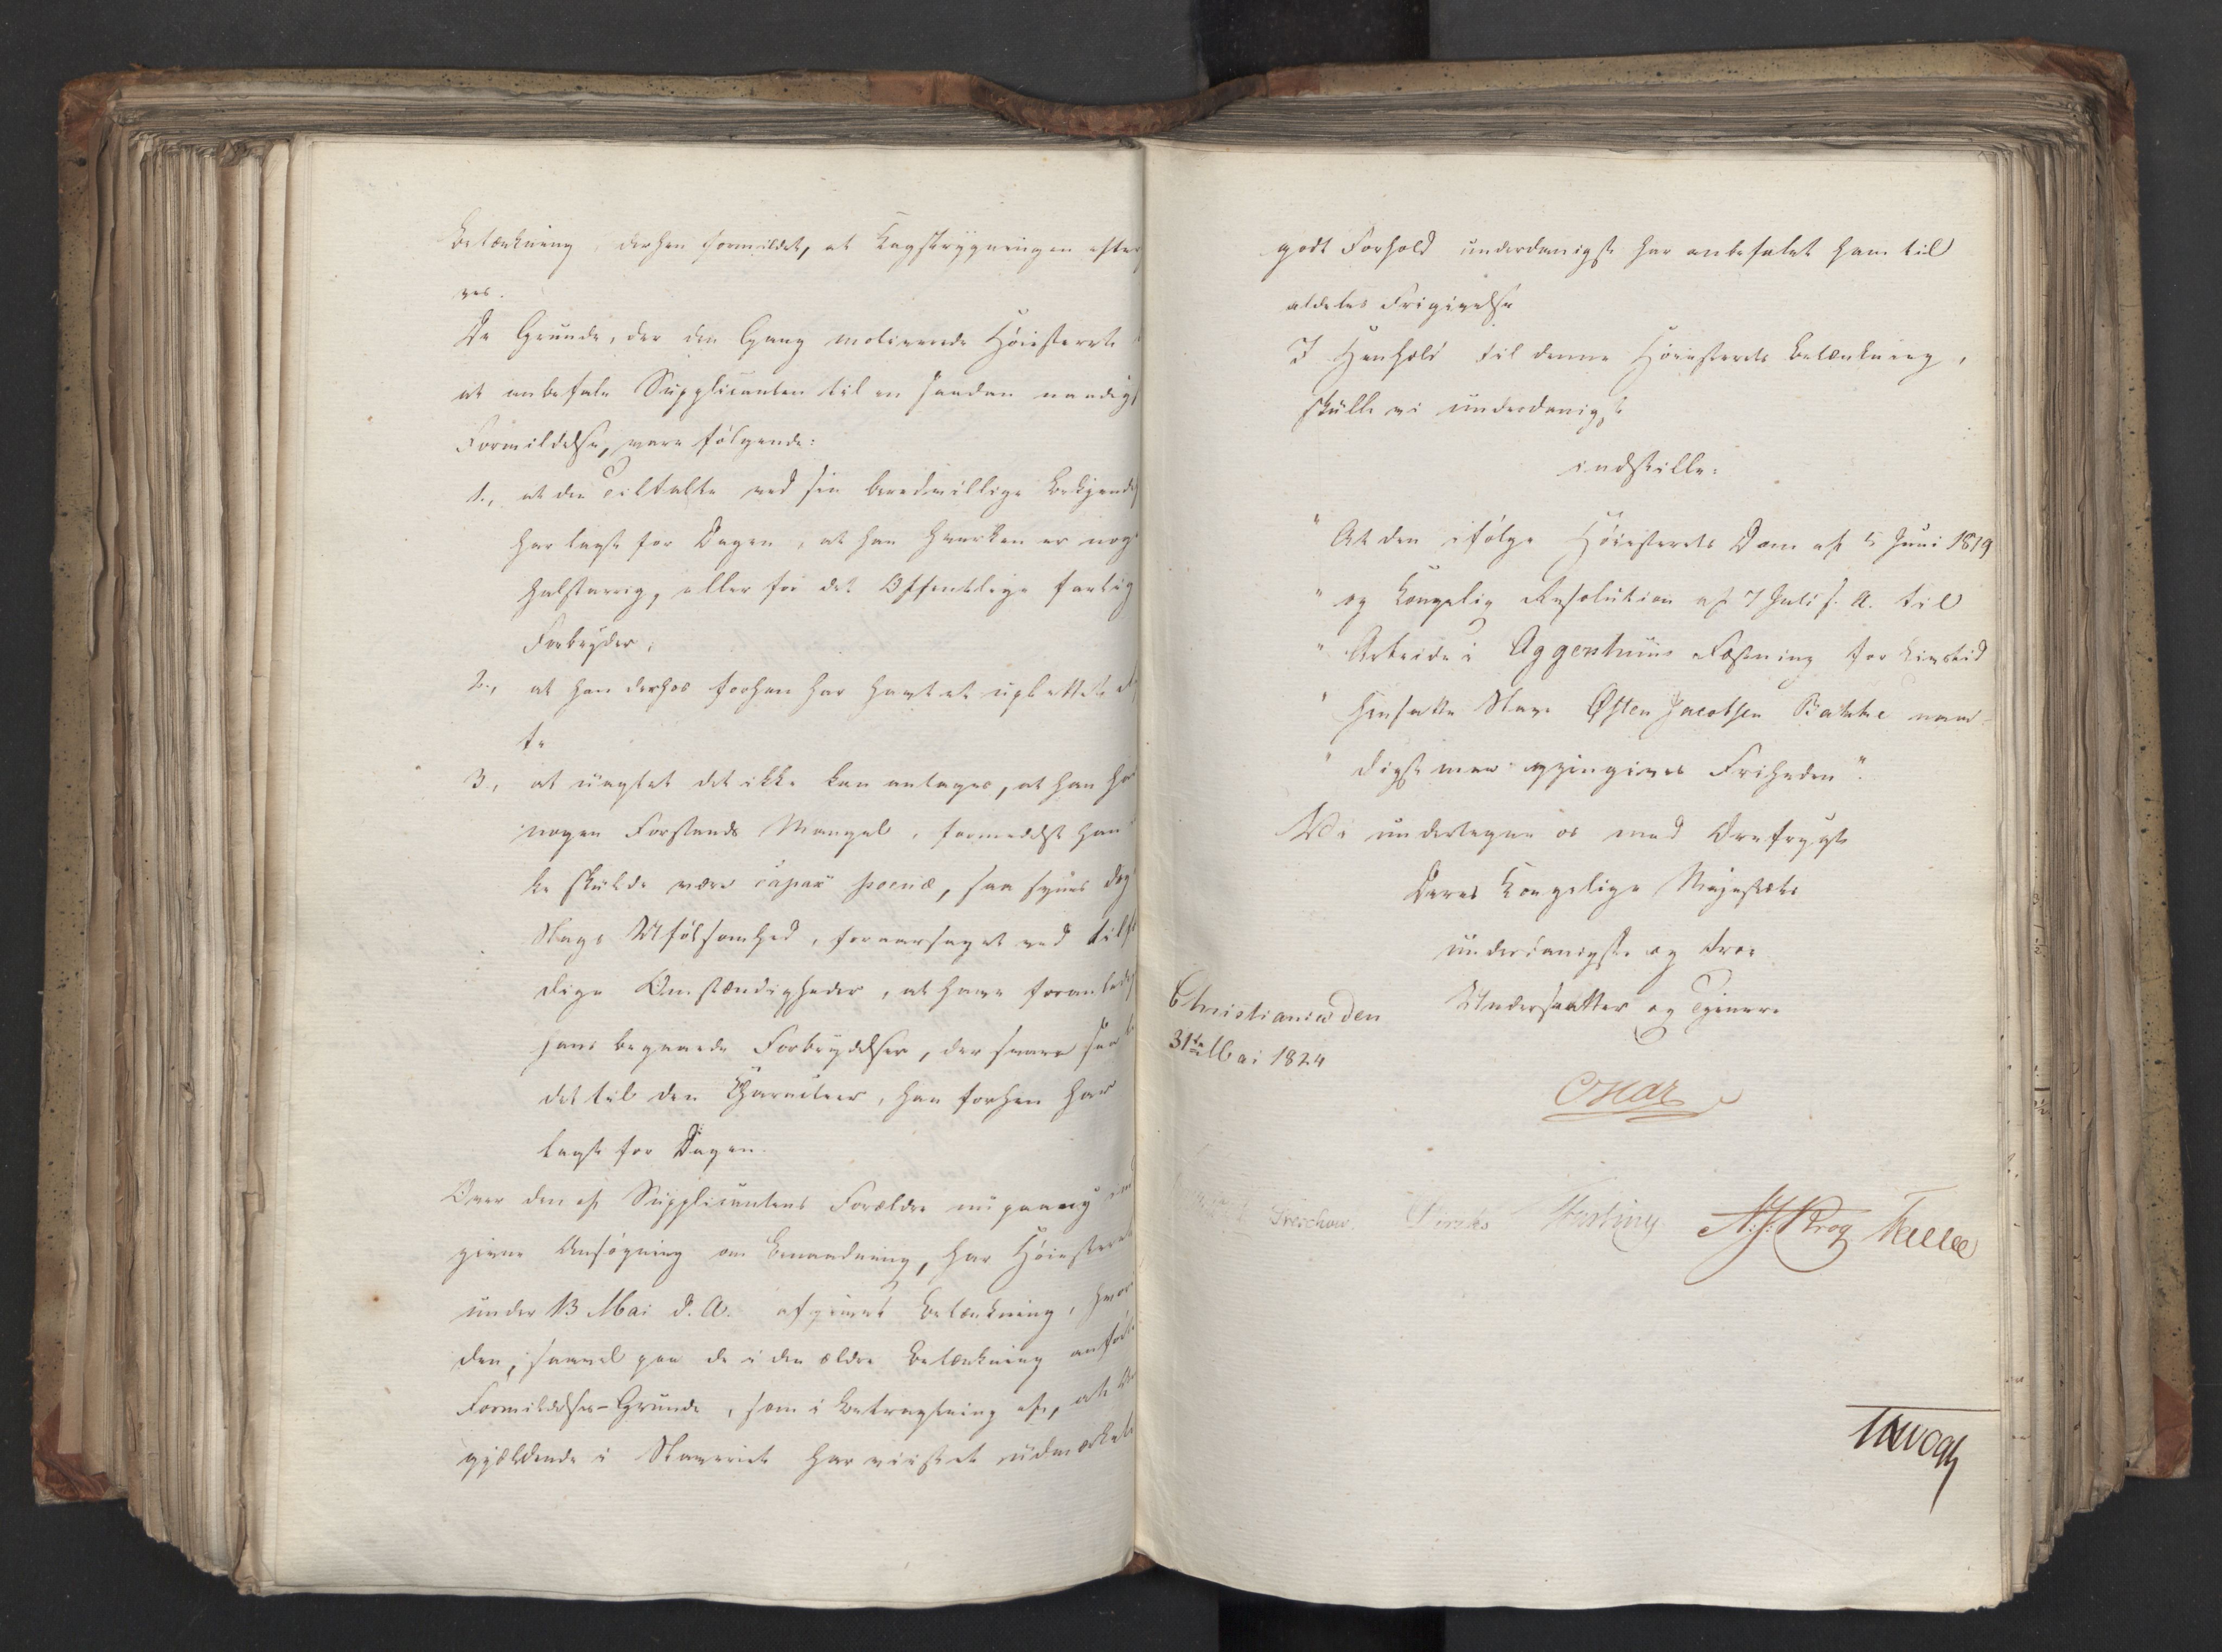 Betænkning, derhen formildet, at Kagstrygningen efter
ves.
De Grunde, der den Gang motiverede Höiesteret
at anbefale Supplicanten til en saadan naadigst
Formildelse, vare følgende:
1., at den Tiltalte ved sin beredvillige Bekjendelse
har lagt for Dagen, at han hverken er nog
halstarrig, eller for det Offentlige farlig
Forbryder;
2., at han derhos forhen har havt et uplettet
te
3, at uagtet det ikke kan antages, at han ha
nogen Forstands Mangel, formedelst han
ke skulde være capax poenæ, saa synes dog
Slags Ufølsomhed, foraarsaget ved tilf
dige Omstændigheder, at have foranled
hans begaaede Forbrydelser, der svare saa
det til den Character, han forhen har
lagt for Dagen.
Over den af Supplicantens Forældre nu paany ind
givne Ansögning om Benaadning, har Höiesteret
under 13 Mai d. A. afgivet Betænkning, hvor
den, saavel paa de i den ældre Betænkning anförte
Formildelses-Grunde, som i Betragtning af, at
gjældende i Slaveriet har viist et udmærket
godt Forhold underdanigst har anbefalet ham til
aldeles Frigivelse
I Henhold til denne Höiesterets Betænkning,
skulle vi underdanigst
indstille:
" At den ifølge Höiesterets Dom af 5 Juni 1819
" og Kongelig Resolution af 7 Juli s. A. til
" Arbeide i Aggershuus Fæstning for Livstid
" hensatte Slave Østen Jacobsen Bakke naa-
" digst maa gjengives Friheden".
Vi undertegne os med Ærefrygt
Deres Kongelige Majestæts
underdanigste og troe
Undersaatter og Tjenere
Christiania den
31te Mai 1824
Oscar
Treschow. Diriks Fasting N.J. Krog
Vogt